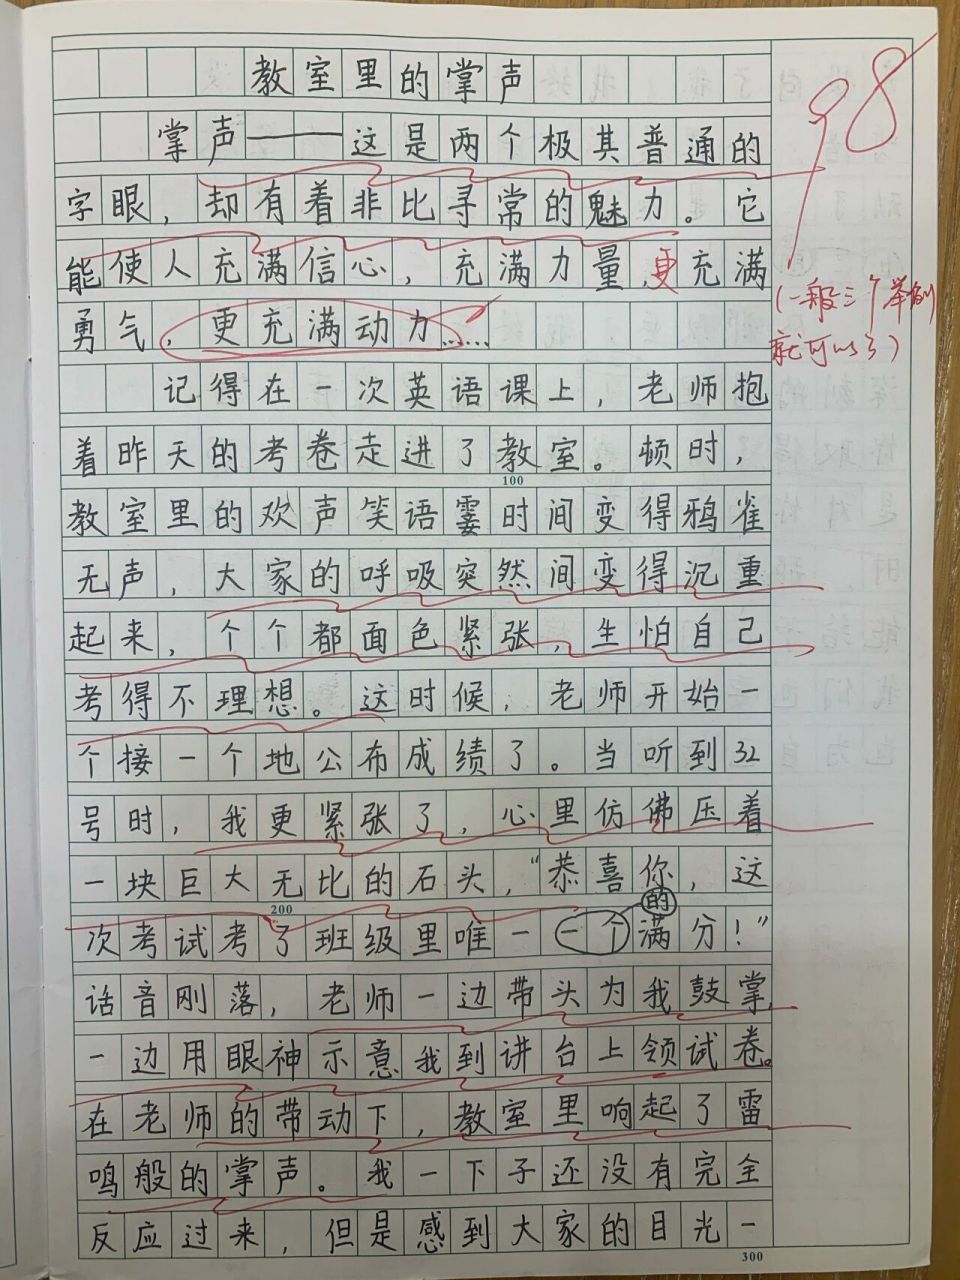 教室里的掌声
98
掌声——这是两个极其普通的
字眼，却有着非比寻常的魅力。它
能使人充满信心，充满力量，更充满
(一般三个举例
勇气，更充满动力……
就可以了)
记得在一次英语课上，老师抱
着昨天的考卷走进了教室。顿时，
100
教室里的欢声笑语霎时间变得鸦雀
无声，大家的呼吸突然间变得沉重
起来，个个都面色紧张，生怕自己
考得不理想。这时候，老师开始一
个接一个地公布成绩了。当听到32
号时，我更紧张了，心里仿佛压着
一块巨大无比的石头，“恭喜你，这
200
的
次考试考了班级里唯一一个满分！”
话音刚落，老师一边带头为我鼓掌，
一边用眼神示意我到讲台上领试卷。
在老师的带动下，教室里响起了雷
鸣般的掌声。我一下子还没有完全
反应过来，但是感到大家的目光一
300